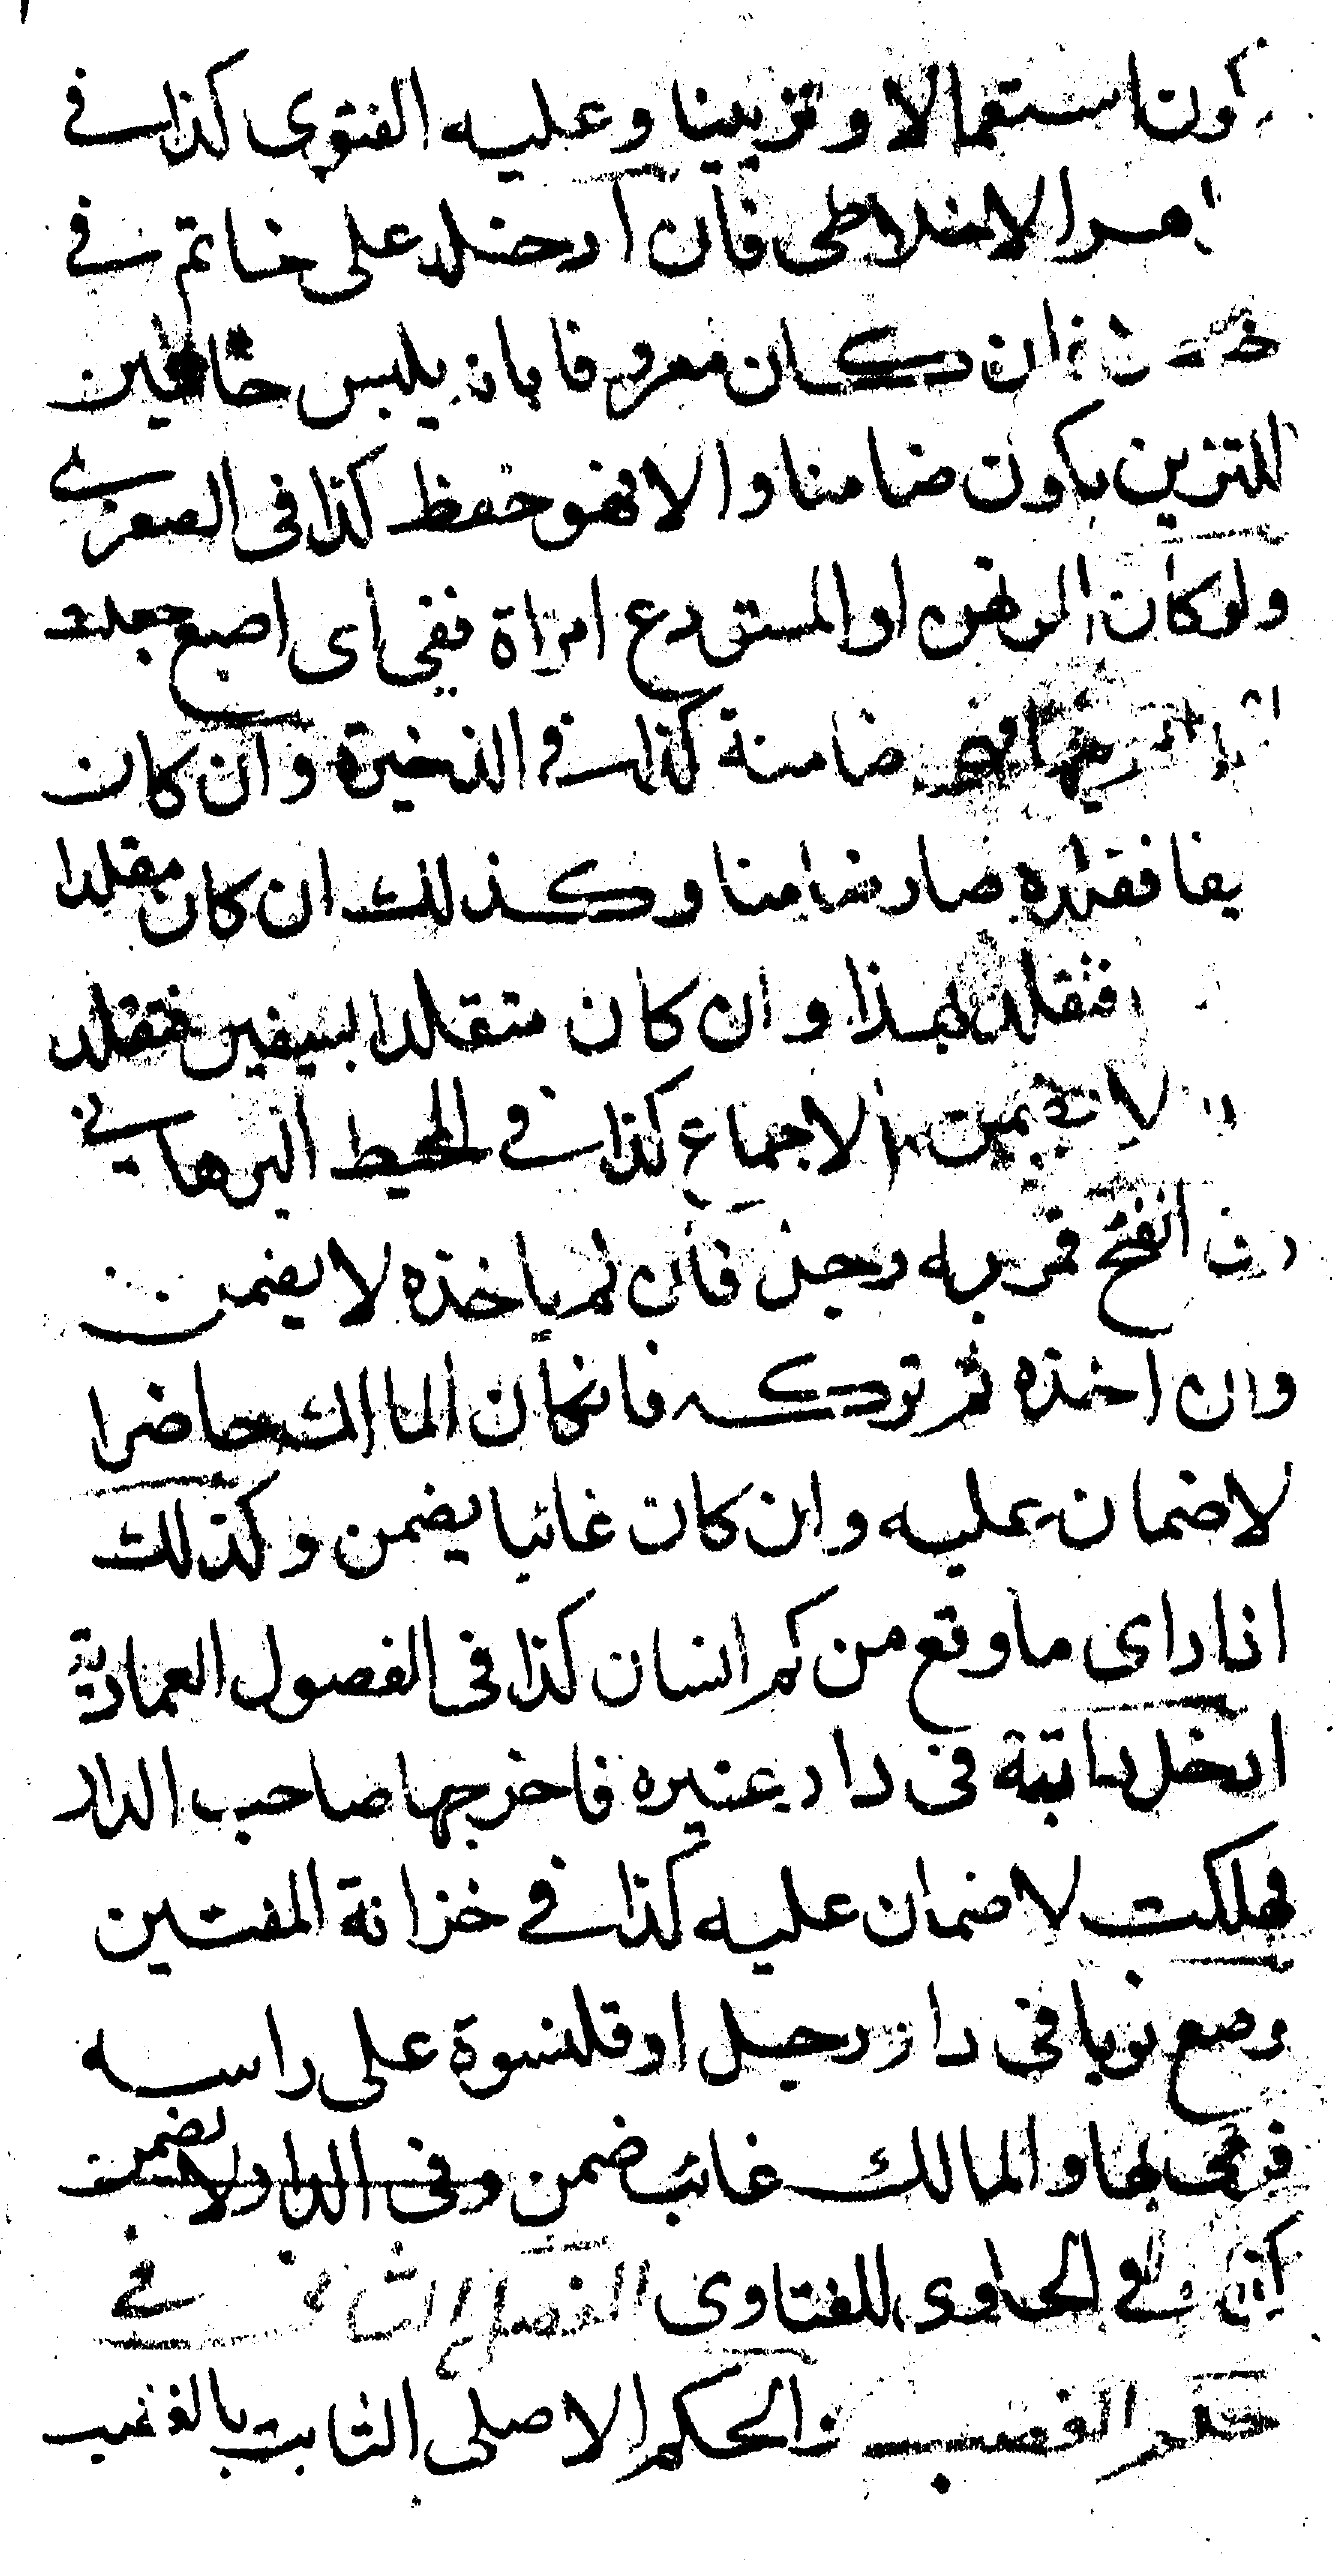 يكون استعمالا وتزيينا وعليه الفتوى كذا في
جواهر الاخلاطى فان ادخله على خاتم في
خنصره ان كان معروفا بانه يلبس خاتمين
للتزين يكون ضامنا والا فهو حفظ كذا في الصغرى
ولو كان المرتهن او المستودع امراة ففي اى اصبع جعلته
فهي ضامنة كذا في الذخيرة وان كان
سيفا فقلده صار ضامنا وكذلك ان كان مقلدا
فتقلد بهذا وان كان متقلدا بسيفين فتقلد
لا يضمن بالاجماع كذا في المحيط البرهاني
زق انفتح فمر به رجل فان لم ياخذه لا يضمن
وان اخذه ثم تركه فان كان المالك حاضرا
لا ضمان عليه وان كان غائبا يضمن وكذلك
اذا راى ما وقع من كم انسان كذا في الفصول العمادية
ادخل دابة في دار غيره فاخرجها صاحب الدار
فهلكت لا ضمان عليه كذا في خزانة المفتين
وضع ثوبا في دار رجل او قلنسوة على راسه
فرمى بها والمالك غائب ضمن وفي الدار لا يضمن
كذا في الحاوى للفتاوى الفصل الثاني في
حكم الغصب والحكم الاصلى الثابت بالغصب